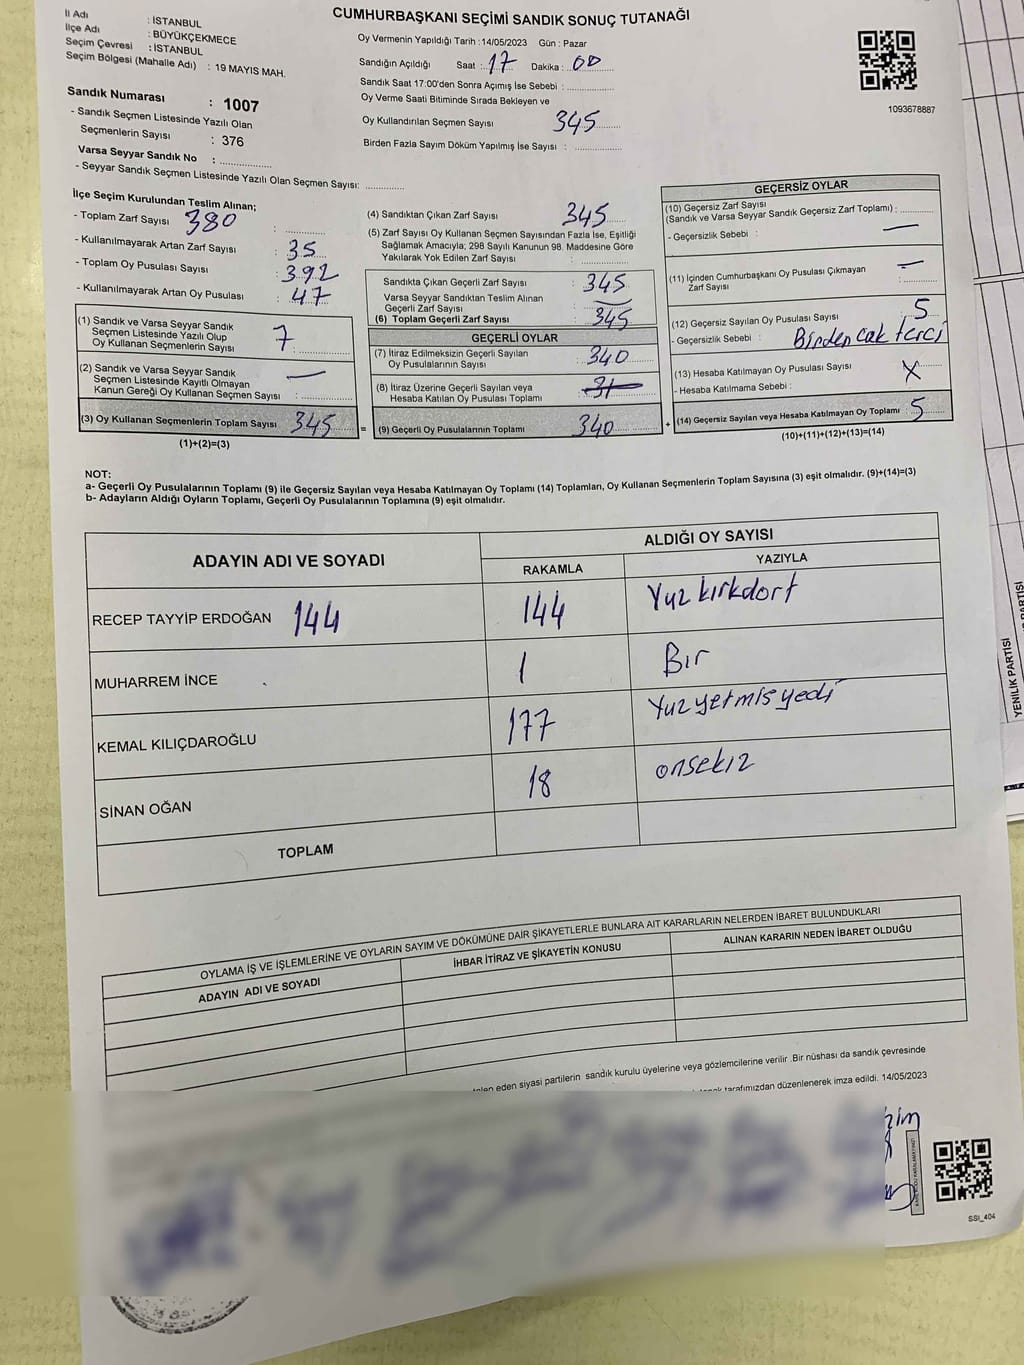 CUMHURBAŞKANI SEÇİMİ SANDIK SONUÇ TUTANAĞI
İl Adı : İSTANBUL
İlçe Adı : BÜYÜKÇEKMECE
Seçim Çevresi : İSTANBUL
Seçim Bölgesi (Mahalle Adı) : 19 MAYIS MAH.
Sandık Numarası : 1007
- Sandık Seçmen Listesinde Yazılı Olan
Seçmenlerin Sayısı : 376
Varsa Seyyar Sandık No :
- Seyyar Sandık Seçmen Listesinde Yazılı Olan Seçmen Sayısı:
Oy Vermenin Yapıldığı Tarih : 14/05/2023 Gün : Pazar
Sandığın Açıldığı Saat : 17 Dakika : 00
Sandık Saat 17:00'den Sonra Açımış İse Sebebi :
Oy Verme Saati Bitiminde Sırada Bekleyen ve
Oy Kullandırılan Seçmen Sayısı 345
Birden Fazla Sayım Döküm Yapılmış İse Sayısı :
1093678887
İlçe Seçim Kurulundan Teslim Alınan;
- Toplam Zarf Sayısı 380 :
- Kullanılmayarak Artan Zarf Sayısı : 35
- Toplam Oy Pusulası Sayısı : 392
- Kullanılmayarak Artan Oy Pusulası : 47
(1) Sandık ve Varsa Seyyar Sandık
Seçmen Listesinde Yazılı Olup
Oy Kullanan Seçmenlerin Sayısı : 7
(2) Sandık ve Varsa Seyyar Sandık
Seçmen Listesinde Kayıtlı Olmayan
Kanun Gereği Oy Kullanan Seçmen Sayısı : —
(3) Oy Kullanan Seçmenlerin Toplam Sayısı 345
(1)+(2)=(3)
(4) Sandıktan Çıkan Zarf Sayısı 345
(5) Zarf Sayısı Oy Kullanan Seçmen Sayısından Fazla İse, Eşitliği
Sağlamak Amacıyla; 298 Sayılı Kanunun 98. Maddesine Göre
Yakılarak Yok Edilen Zarf Sayısı :
Sandıkta Çıkan Geçerli Zarf Sayısı : 345
Varsa Seyyar Sandıktan Teslim Alınan
Geçerli Zarf Sayısı : —
(6) Toplam Geçerli Zarf Sayısı : 345
GEÇERLİ OYLAR
(7) İtiraz Edilmeksizin Geçerli Sayılan
Oy Pusulasının Sayısı : 340
(8) İtiraz Üzerine Geçerli Sayılan veya
Hesaba Katılan Oy Pusulası Toplamı
= (9) Geçerli Oy Pusulalarının Toplamı 340
GEÇERSİZ OYLAR
(10) Geçersiz Zarf Sayısı
(Sandık ve Varsa Seyyar Sandık Geçersiz Zarf Toplamı) : —
- Geçersizlik Sebebi :
(11) İçinden Cumhurbaşkanı Oy Pusulası Çıkmayan
Zarf Sayısı : —
(12) Geçersiz Sayılan Oy Pusulası Sayısı : 5
- Geçersizlik Sebebi : Birden cak terci
(13) Hesaba Katılmayan Oy Pusulası Sayısı : X
- Hesaba Katılmama Sebebi :
+ (14) Geçersiz Sayılan veya Hesaba Katılmayan Oy Toplamı 5
(10)+(11)+(12)+(13)=(14)
NOT:
a- Geçerli Oy Pusulalarının Toplamı (9) ile Geçersiz Sayılan veya Hesaba Katılmayan Oy Toplamı (14) Toplamları, Oy Kullanan Seçmenlerin Toplam Sayısına (3) eşit olmalıdır. (9)+(14)=(3)
b- Adayların Aldığı Oyların Toplamı, Geçerli Oy Pusulalarının Toplamına (9) eşit olmalıdır.
ADAYIN ADI VE SOYADI
ALDIĞI OY SAYISI
RAKAMLA YAZIYLA
RECEP TAYYİP ERDOĞAN 144 144 Yuz kırkdort
MUHARREM İNCE 1 Bır
KEMAL KILIÇDAROĞLU 177 Yuz yetmis yedi
SİNAN OĞAN 18 onsekız
TOPLAM
OYLAMA İŞ VE İŞLEMLERİNE VE OYLARIN SAYIM VE DÖKÜMÜNE DAİR ŞİKAYETLERLE BUNLARA AİT KARARLARIN NELERDEN İBARET BULUNDUKLARI
ADAYIN ADI VE SOYADI
İHBAR İTİRAZ VE ŞİKAYETİN KONUSU
ALINAN KARARIN NEDEN İBARET OLDUĞU
eden siyasi partilerin sandık kurulu üyelerine veya gözlemcilerine verilir .Bir nüshası da sandık çevresinde
tarafımızdan düzenlenerek imza edildi. 14/05/2023
SSI_404
YENİLİK PARTİSİ